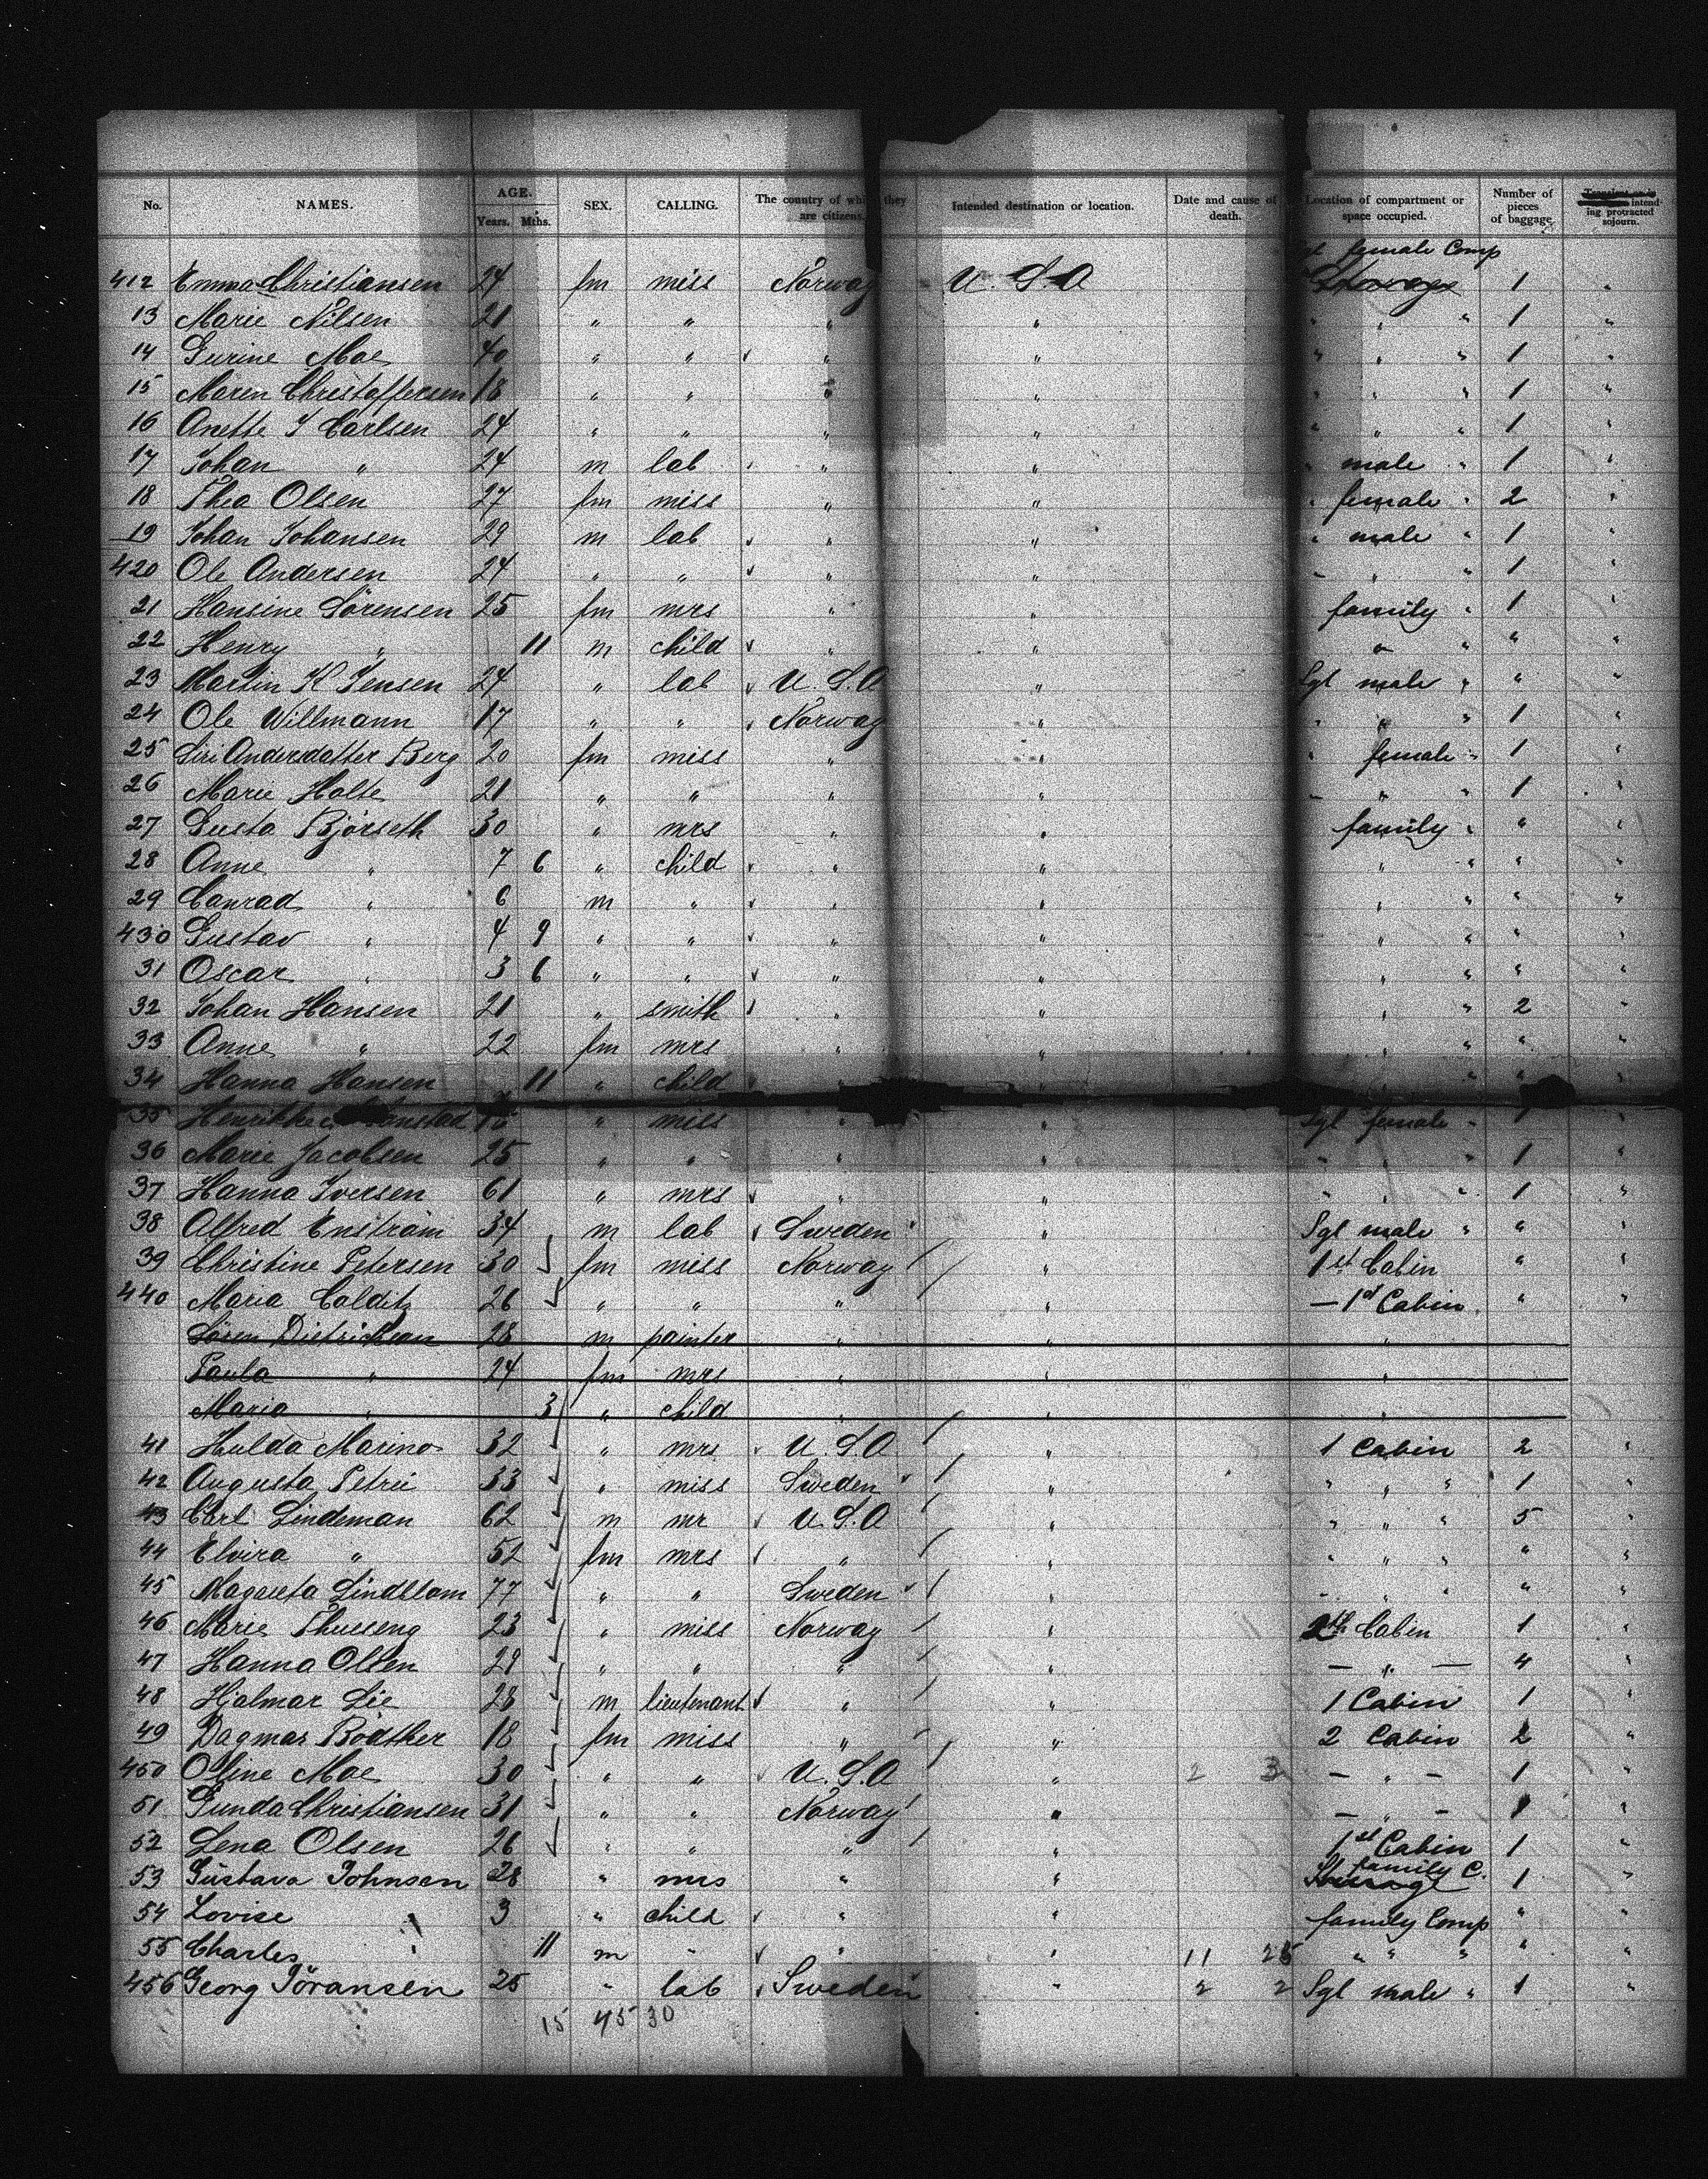 No. NAMES. AGE. Years. Mths. SEX. CALLING. The country of which they are citizens. Intended destination or location. Date and cause of death. Location of compartment or space occupied. Number of pieces of baggage. intending protracted sojourn.
female Comp
412 Emma Christiansen 24 fm miss Norway U.S.A 1 "
13 Marie Nilsen 21 " " " " " " " 1 "
14 Gurine Moe 40 " " " " " " " 1 "
15 Maren Christoffersen 18 " " " " " " " 1 "
16 Anette J Carlsen 24 " " " " " " " 1 "
17 Johan " 24 m lab " " " male " 1 "
18 Thea Olsen 27 fm miss " " " female " 2 "
19 Johan Johansen 29 m lab " " " male " 1 "
420 Ole Andersen 24 " " " " " " 1 "
21 Hansine Sörensen 25 fm mrs " " family " 1 "
22 Henry " 11 m child " " " " " "
23 Martin K Jensen 24 " lab U.S.A " Sgl male " " "
24 Ole Willmann 17 " " Norway " " " " 1 "
25 Siri Andersdatter Berg 20 fm miss " " " female " 1 "
26 Marie Holte 21 " " " " " 1 "
27 Gusta Björseth 30 " mrs " " family " " "
28 Anne " 7 6 " child " " " " " "
29 Conrad " 6 m " " " " " " "
430 Gustav " 4 9 " " " " " " " "
31 Oscar " 3 6 " " " " " " " "
32 Johan Hansen 21 " smith " " " " 2 "
33 Anne " 22 fm mrs " " " " " "
34 Hanna Hansen 11 " child " " " "
35 " miss " Sgl female " 1 "
36 Marie Jacobsen 25 " " " " " " " 1 "
37 Hanna Iversen 61 " mrs " " " " " 1 "
38 Alfred Enström 34 m lab Sweden " Sgl male " " "
39 Christine Petersen 30 fm miss Norway " 1st Cabin " "
440 Maria Colditz 26 " " " " — 1st Cabin " "
Sören Dietrichson 28 m painter " " "
Paula " 24 fm mrs " " "
Maria " 3 " child " " "
41 Hulda Marino 32 " mrs U.S.A " 1 Cabin 2 "
42 Augusta Petri 33 " miss Sweden " " " " 1 "
43 Carl Lindeman 62 m mr U.S.A " " " " 5 "
44 Elvira " 52 fm mrs " " " " " " "
45 Magareta Lindblom 77 " " Sweden " " " " " "
46 Marie 23 " miss Norway " 2th Cabin 1 "
47 Hanna Olsen 29 " " " " — " — 4 "
48 Hjalmar Lie 28 m lieutenant " " 1 Cabin 1 "
49 Dagmar Rödther 18 fm miss " " 2 Cabin 2 "
450 Oline Moe 30 " " U.S.A " 2 3 — " — 1 "
51 Gunda Christiansen 31 " " Norway " — " — 1 "
52 Lena Olsen 26 " " " " 1st Cabin 1 "
53 Gustava Johnsen 28 " mrs " " family C. 1 "
54 Lovise " 3 " child " " family Comp " "
55 Charles " 11 m " " " 11 25 " " " " "
456 Georg Göransen 25 " lab Sweden " 2 2 Sgl male " 1 "
15 45 30